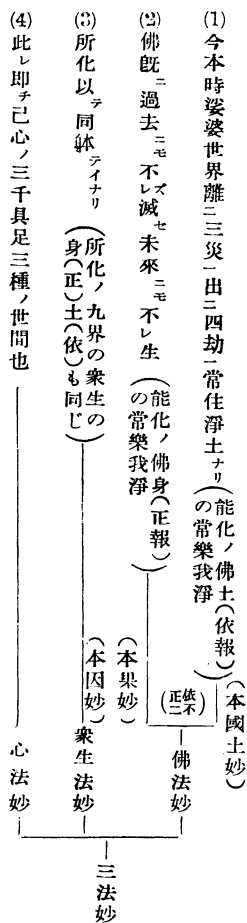 (1) 今本時娑婆世界離ニ三災一出ニ四劫一常住淨土ナリ
(能化ノ佛土(依報)
の常樂我淨)
(本國土妙)
(2) 佛既ニ過去ニモ不レ滅セズ未來ニモ不レ生
(能化ノ佛身(正報)
の常樂我淨)
(本果妙)
(依正不二)
佛法妙
(3) 所化以テ同躰テイナリ
(所化ノ九界の衆生の
身(正)土(依)も同じ)
(本因妙)
衆生法妙
(4) 此レ即チ己心ノ三千具足三種ノ世間也
心法妙
三法妙